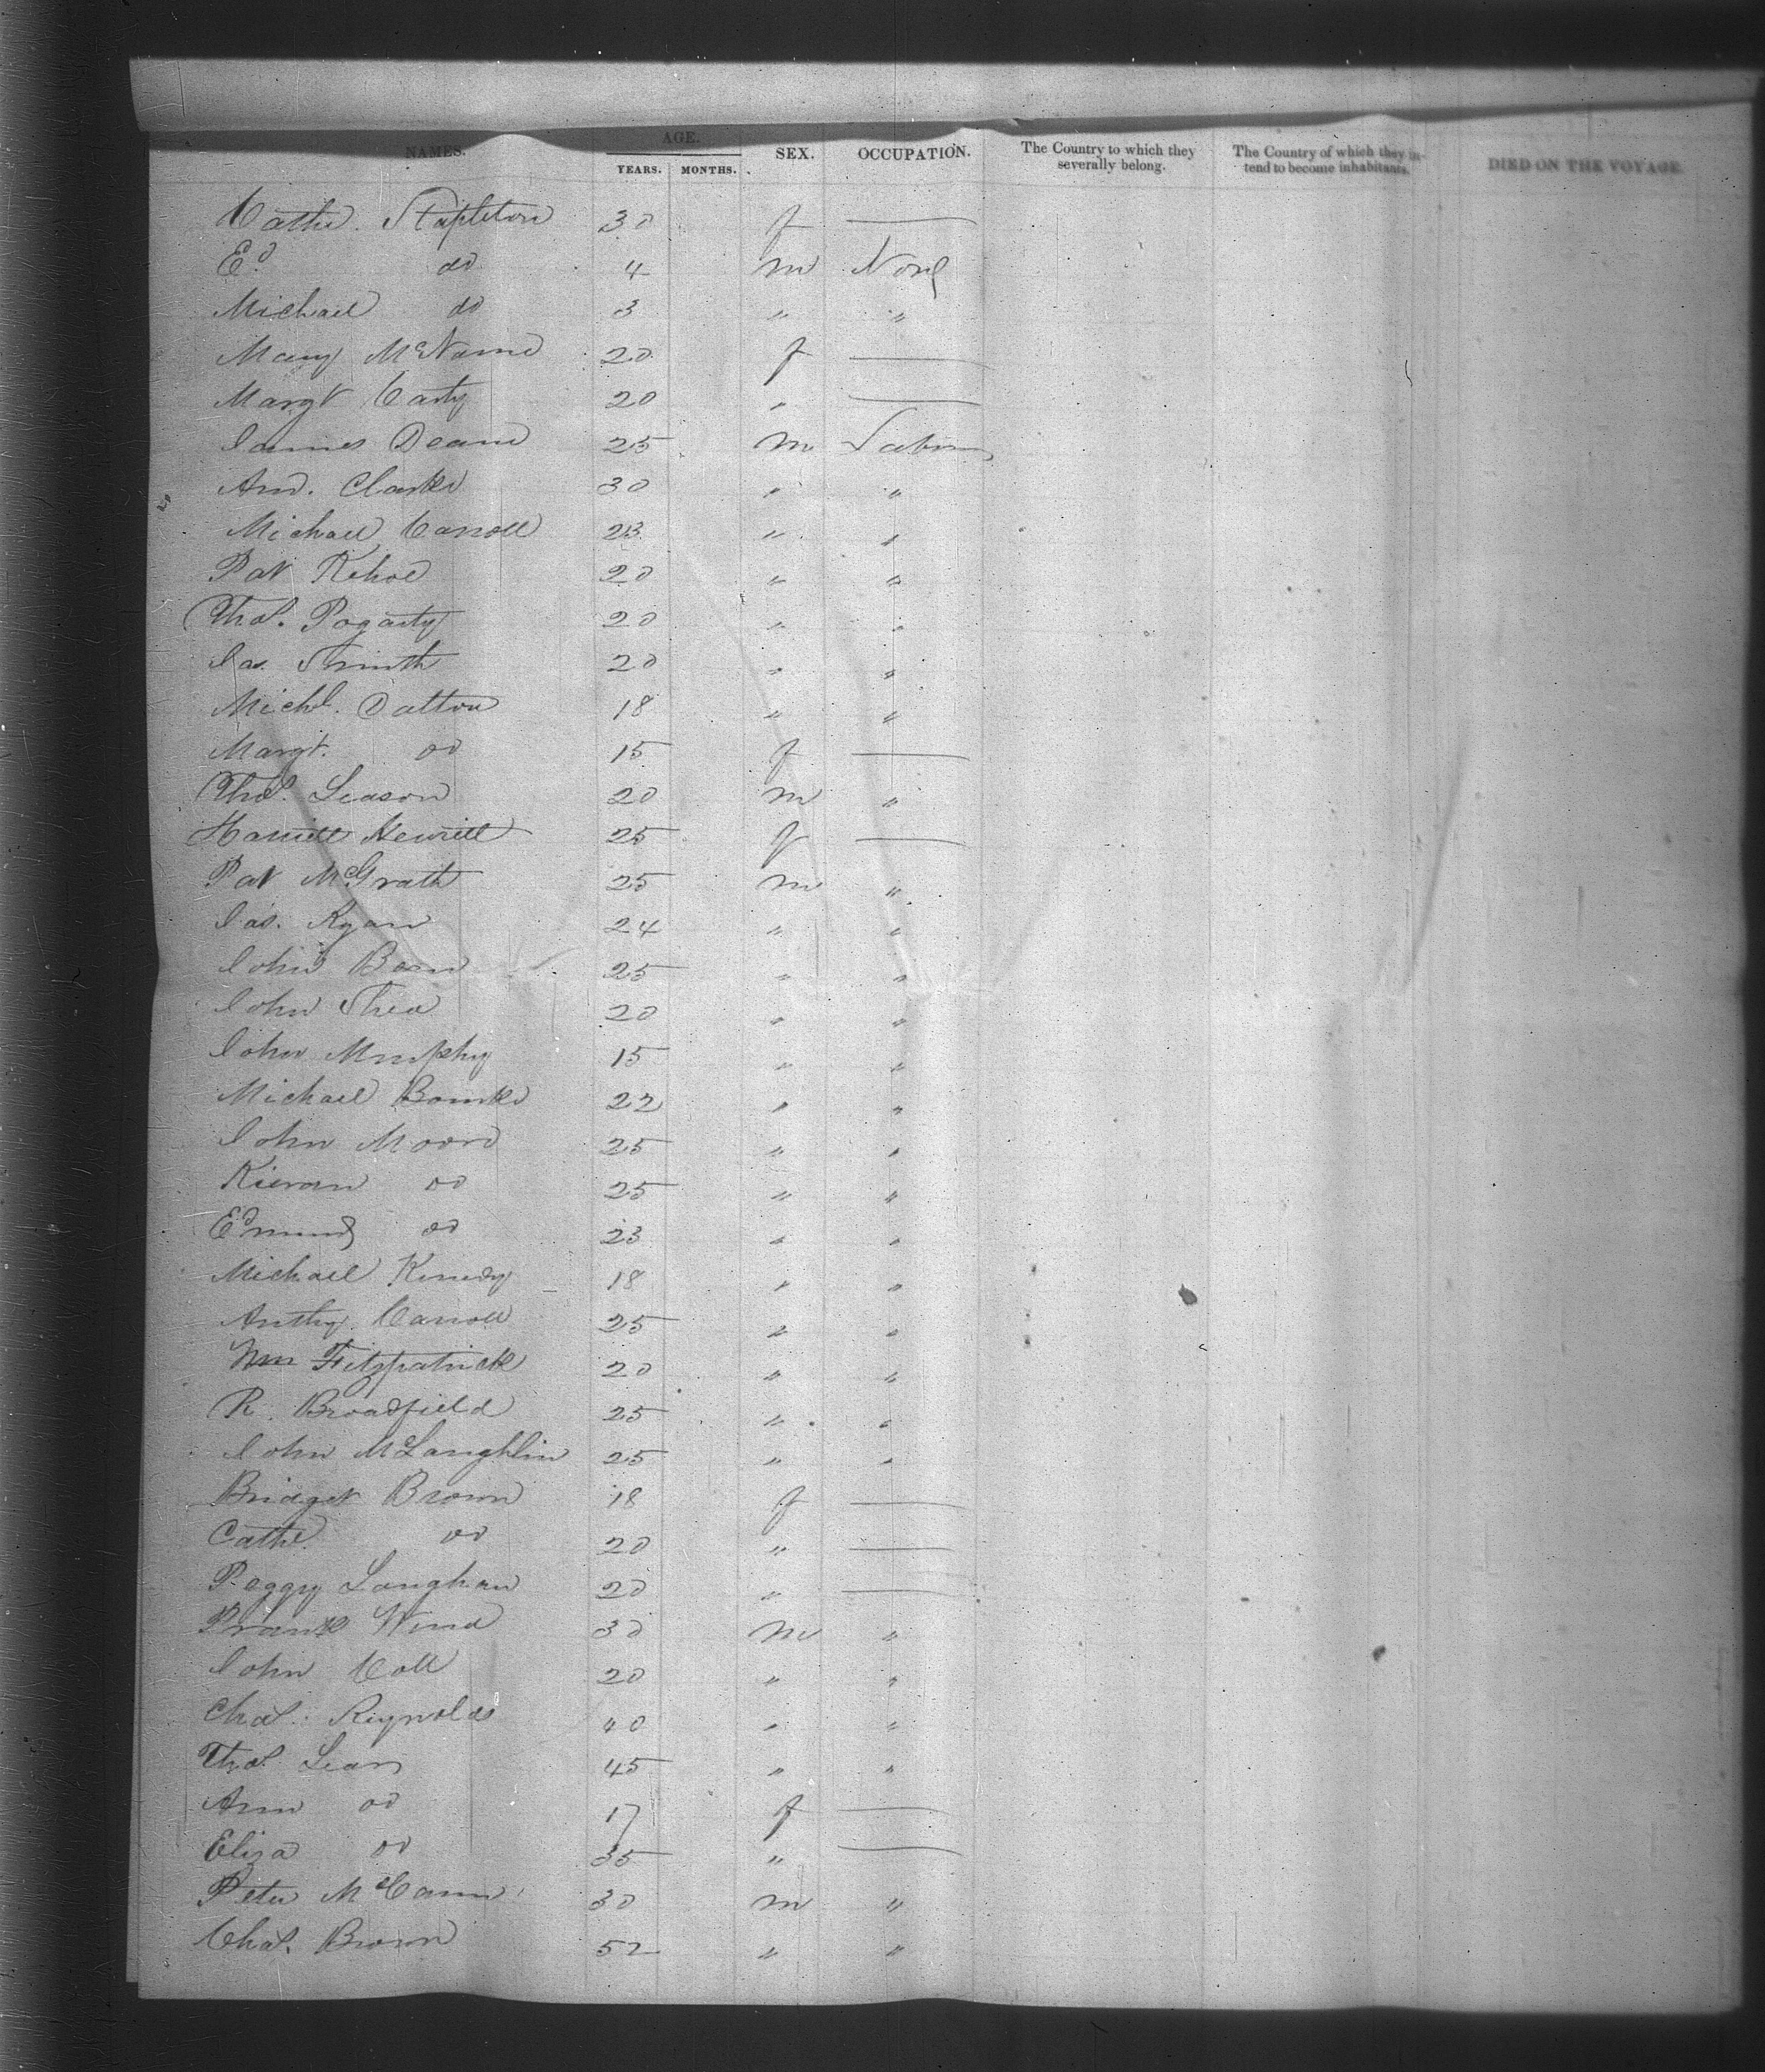 NAMES. AGE. YEARS. MONTHS. SEX. OCCUPATION. The Country to which they severally belong. The Country of which they intend to become inhabitants. DIED ON THE VOYAGE.
Cathe. Stapleton 30 f —
Ed. do 4 m None
Michael do 3 " "
Mary McName 20 f —
Margt Carty 20 " —
James Deane 25 m Labour
And. Clarke 30 " "
Michael Carroll 23 " "
Pat Kehoe 20 " "
Thos. Fogarty 20 " "
Jas. Smith 20 " "
Michl. Dalton 18 " "
Margt. do 15 f —
Thos. Leason 20 m "
Harriett Hewitt 25 f —
Pat McGrath 25 m "
Jas. Ryan 24 " "
John Bean 25 " "
John Shea 20 " "
John Murphy 15 " "
Michael Bourke 22 " "
John Moore 25 " "
Kieran do 25 " "
Edmund do 23 " "
Michael Kenedy 18 " "
Anthy. Carroll 25 " "
Wm Fitzpatrick 20 " "
R. Broadfield 25 " "
John McLaughlin 25 " "
Bridget Brown 18 f —
Cathe. do 20 " —
Peggy Langhan 20 " —
Frank 30 m "
John Coll 20 " "
Chas. Reynolds 40 " "
Thos. Lean 45 " "
Ann do 17 f —
Eliza do 35 " —
Peter McCann 30 m "
Chas. Brown 52 " "